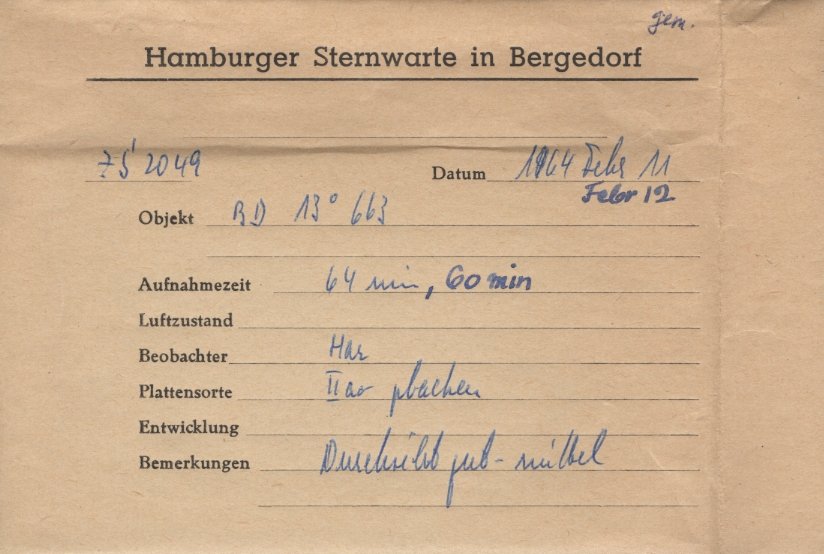 gem.
Hamburger Sternwarte in Bergedorf
ZS' 2049
Datum 1964 Febr 11
Febr 12
Objekt BD 13° 663
Aufnahmezeit 64 min, 60 min
Luftzustand
Beobachter Har
Plattensorte IIao gebacken
Entwicklung
Bemerkungen Durchsicht gut - mittel